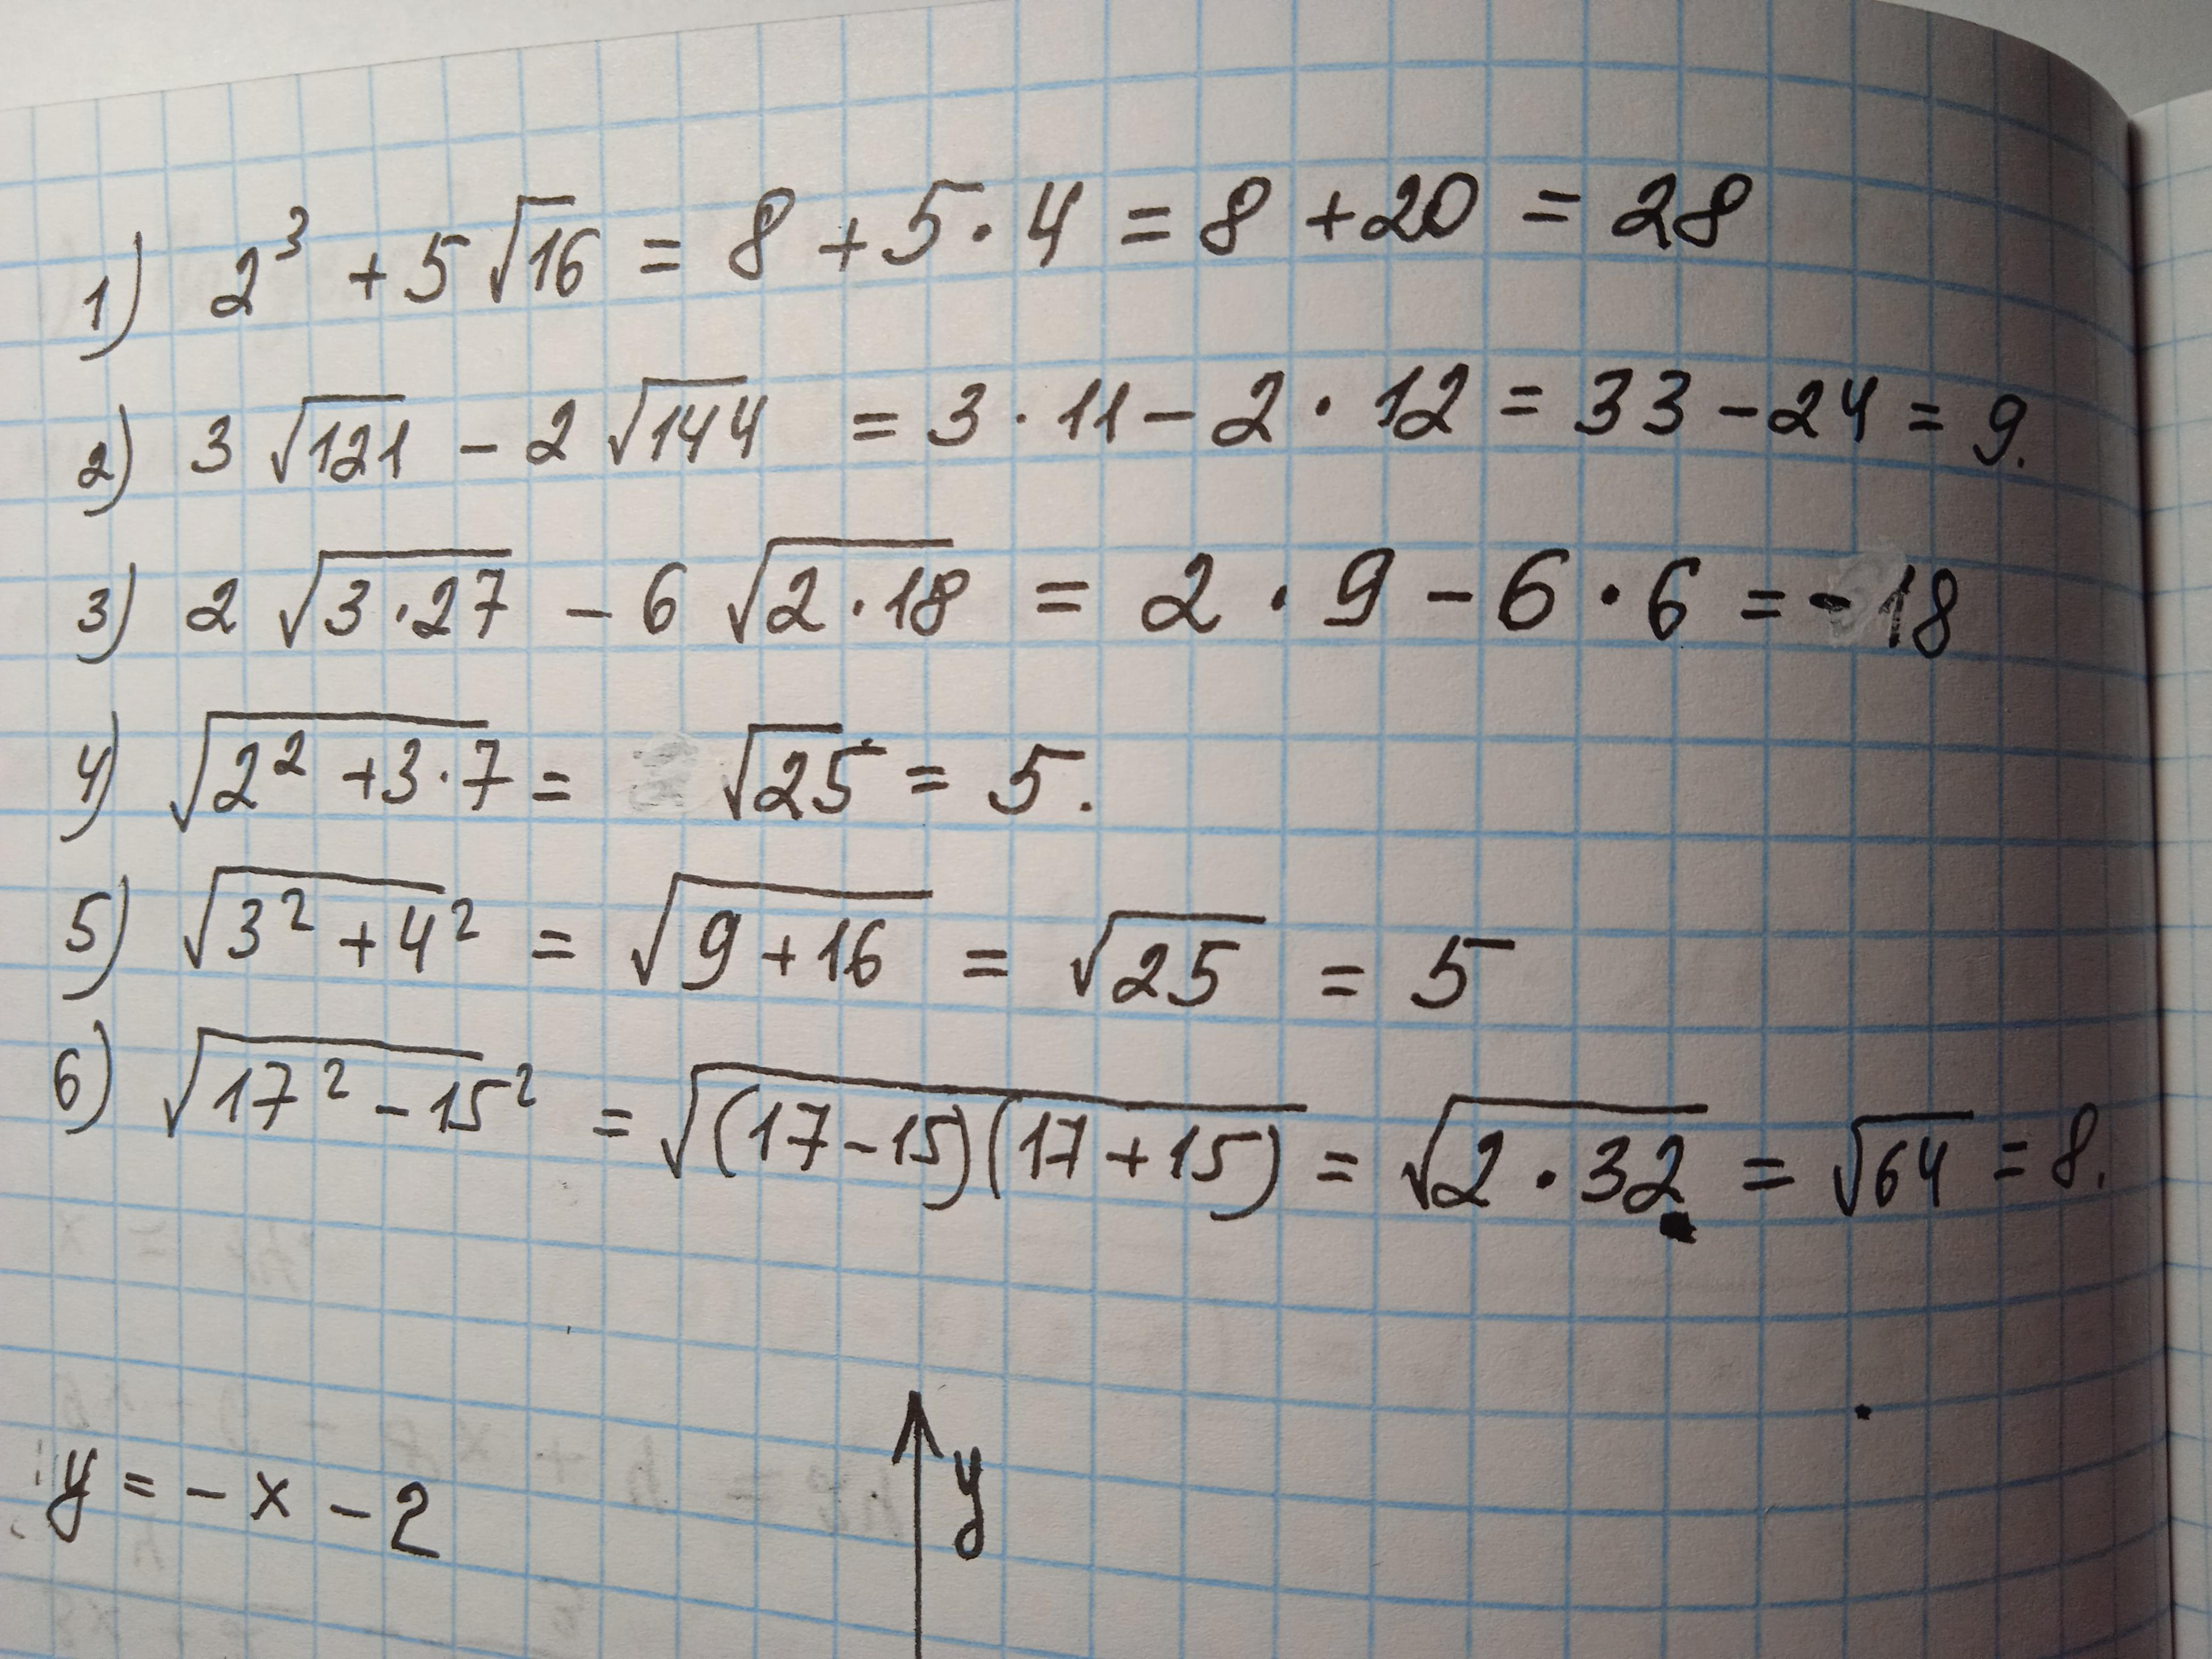 1) 2³ + 5√16 = 8 + 5 · 4 = 8 + 20 = 28
2) 3√121 - 2√144 = 3 · 11 - 2 · 12 = 33 - 24 = 9.
3) 2√(3 · 27) - 6√(2 · 18) = 2 · 9 - 6 · 6 = -18
4) √(2² + 3 · 7) = √25 = 5.
5) √(3² + 4²) = √(9 + 16) = √25 = 5
6) √(17² - 15²) = √((17 - 15)(17 + 15)) = √(2 · 32) = √64 = 8.
y = - x - 2
y